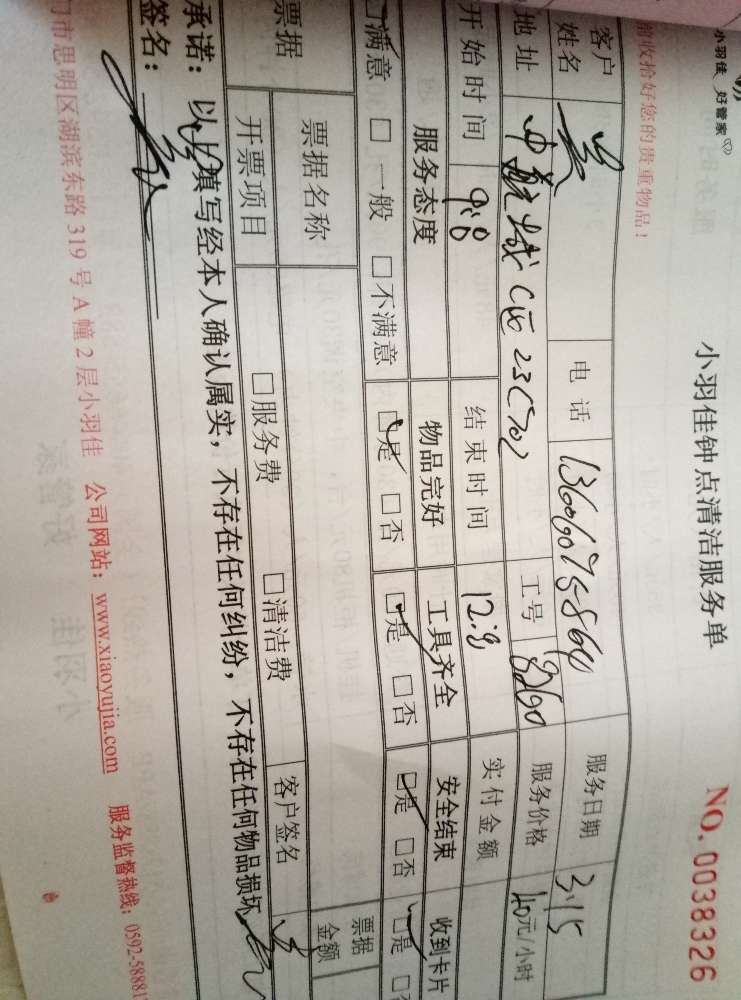 小羽佳 好管家
小羽佳钟点清洁服务单
NO. 0038326
前收拾好您的贵重物品！
客户姓名 电话 服务日期 3.15
地址 中航城C区23C702 工号 8260 服务价格 40元/小时
开始时间 9:8 结束时间 12:8 实付金额
服务态度 物品完好 工具齐全 安全结束 收到卡片
□满意 □一般 □不满意 □是 □否 □是 □否 □是 □否 □是
票据 票据名称 票据金额
开票项目 □服务费 □清洁费 客户签名
承诺：以上填写经本人确认属实，不存在任何纠纷，不存在任何物品损坏
签名：
门市思明区湖滨东路 319 号 A 幢 2 层小羽佳 公司网站：www.xiaoyujia.com 服务监督热线：0592-58881